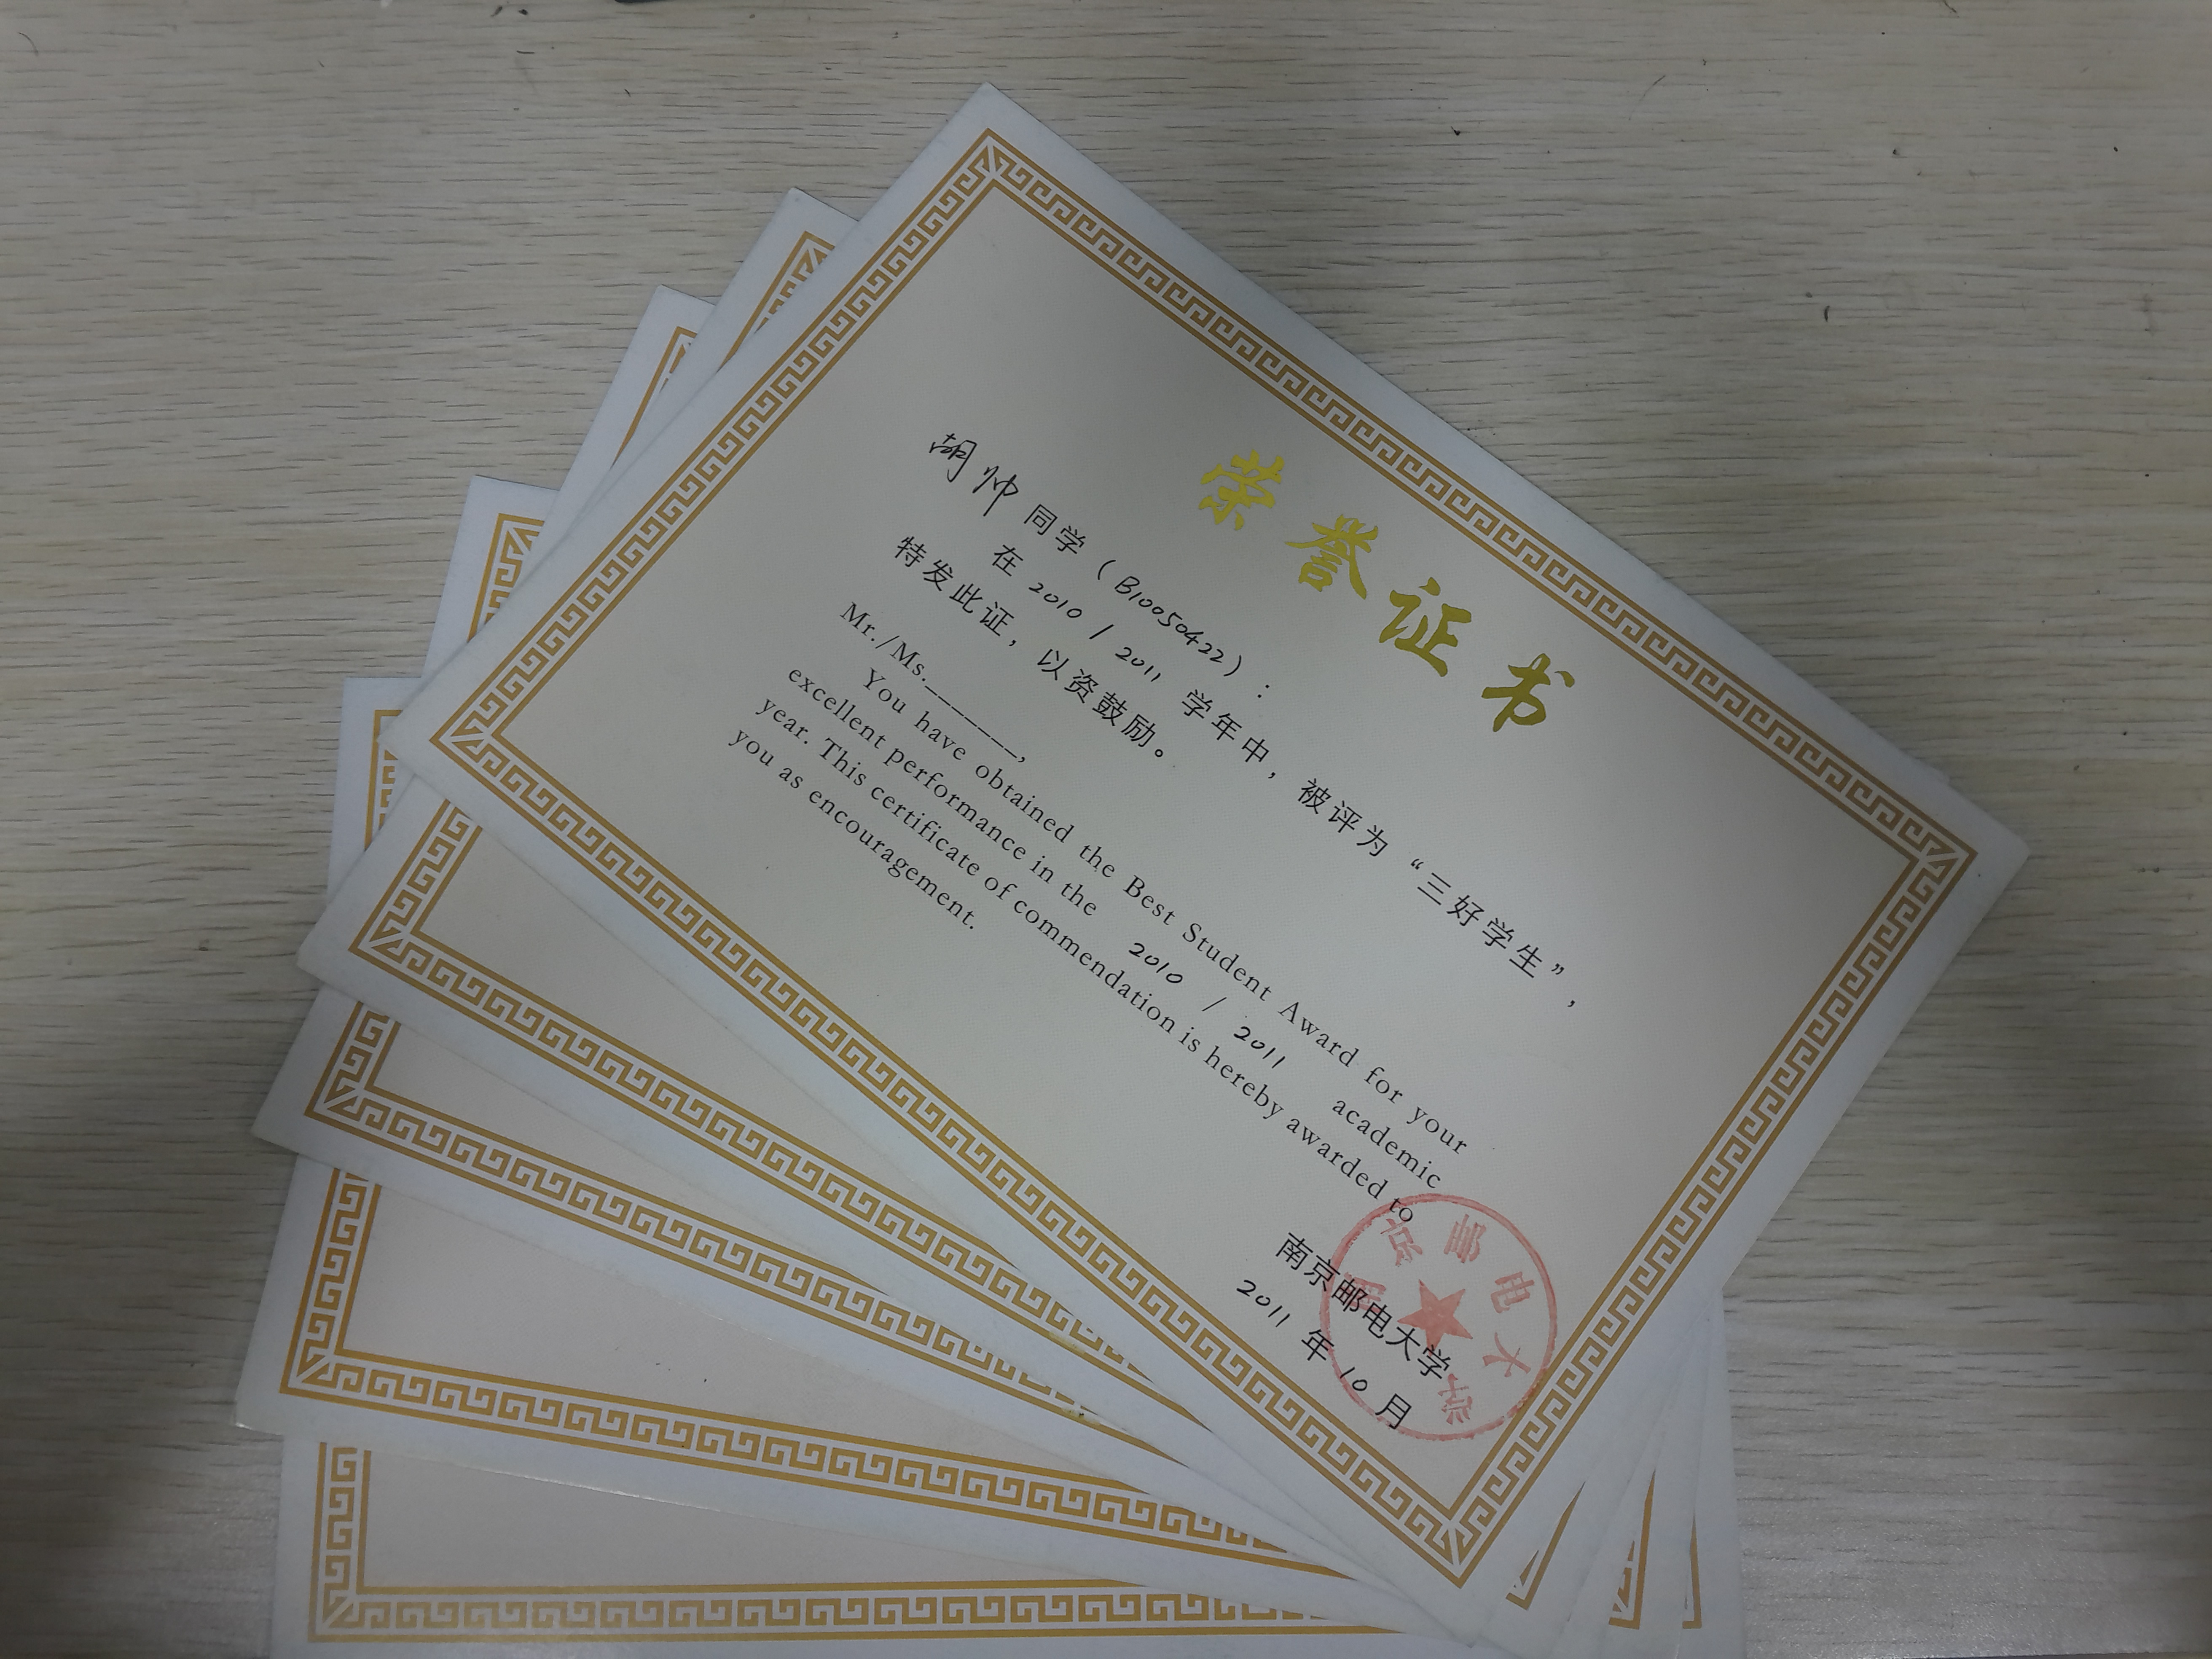 荣誉证书
胡帅同学（B10050422）：
在 2010 / 2011 学年中，被评为“三好学生”，
特发此证，以资鼓励。
Mr./Ms.________,
You have obtained the Best Student Award for your
excellent performance in the 2010 / 2011 academic
year. This certificate of commendation is hereby awarded to
you as encouragement.
南京邮电大学
2011 年 10 月
南京邮电大学